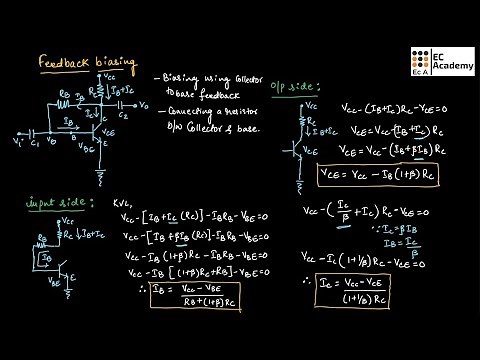 Feedback biasing
EC
Academy
EcA
Vcc
Rc
IB+Ic
RB
IB
Ic
C2
Vo
C1
Vi
IB
B
C
E
VCE
VBE
- Biasing using Collector
to base feedback
- Connecting a resistor
b/w Collector & base.
O/p side:
Vcc
Rc
IB+Ic
VCE
Vcc-(IB+Ic)Rc-VCE=0
VCE=Vcc-(IB+Ic)Rc
VCE=Vcc-(IB+βIB)Rc
VCE = Vcc - IB(1+β)Rc
input side:
Vcc
Rc
IB+Ic
RB
IB
E
VBE
KVL,
Vcc-[IB+Ic(Rc)]-IBRB-VBE=0
Vcc-[IB+βIB(Rc)]-IBRB-VBE=0
Vcc-IB(1+β)Rc-IBRB-VBE=0
Vcc-IB[(1+β)Rc+RB]-VBE=0
∴ IB = Vcc-VBE
RB+(1+β)Rc
Vcc-(Ic/β+Ic)Rc-VCE=0
∵ Ic=βIB
IB=Ic/β
Vcc-Ic(1+1/β)Rc-VCE=0
∴ Ic = Vcc-VCE
(1+1/β)Rc